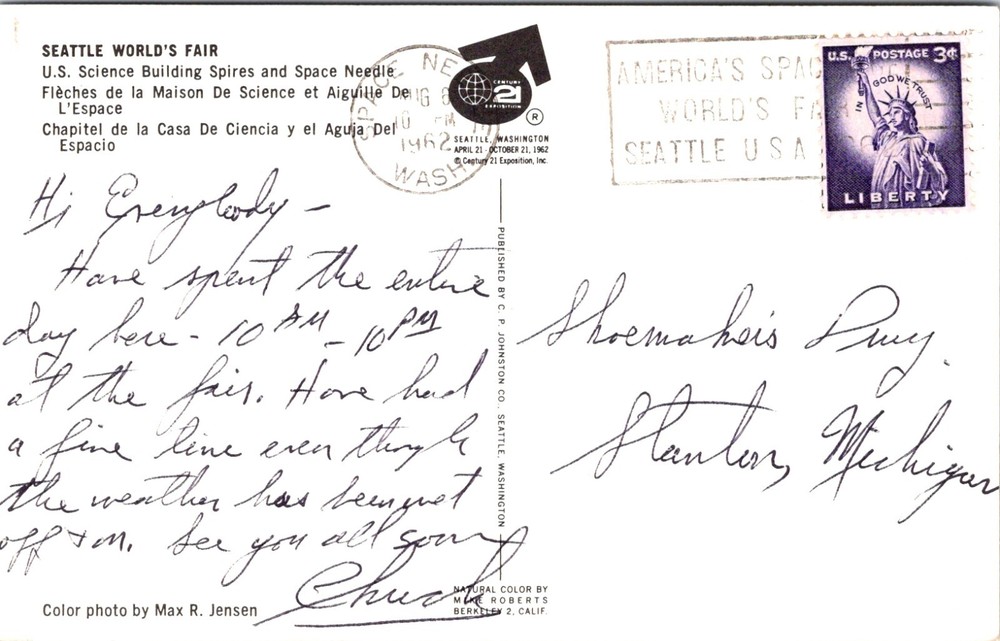 SEATTLE WORLD'S FAIR
U.S. Science Building Spires and Space Needle
Flèches de la Maison De Science et Aiguille De
L'Espace
Chapitel de la Casa De Ciencia y el Aguja Del
Espacio
SPACE NE
AUG 8
10 PM
1962
WASH
CENTURY
21
EXPOSITION
®
SEATTLE, WASHINGTON
APRIL 21 - OCTOBER 21, 1962
© Century 21 Exposition, Inc.
AMERICA'S SPAC
WORLD'S FA
SEATTLE USA
U.S. POSTAGE 3¢
IN GOD WE TRUST
LIBERTY
Hi Everybody -
Have spent the entire
day here - 10 AM - 10 PM
at the fair. Have had
a fine time even though
the weather has been wet
off & on. See you all soon
Chuck
PUBLISHED BY C. P. JOHNSTON CO., SEATTLE, WASHINGTON
Shoemaker's
Stanton, Michigan
Color photo by Max R. Jensen
NATURAL COLOR BY
MIKE ROBERTS
BERKELEY 2, CALIF.